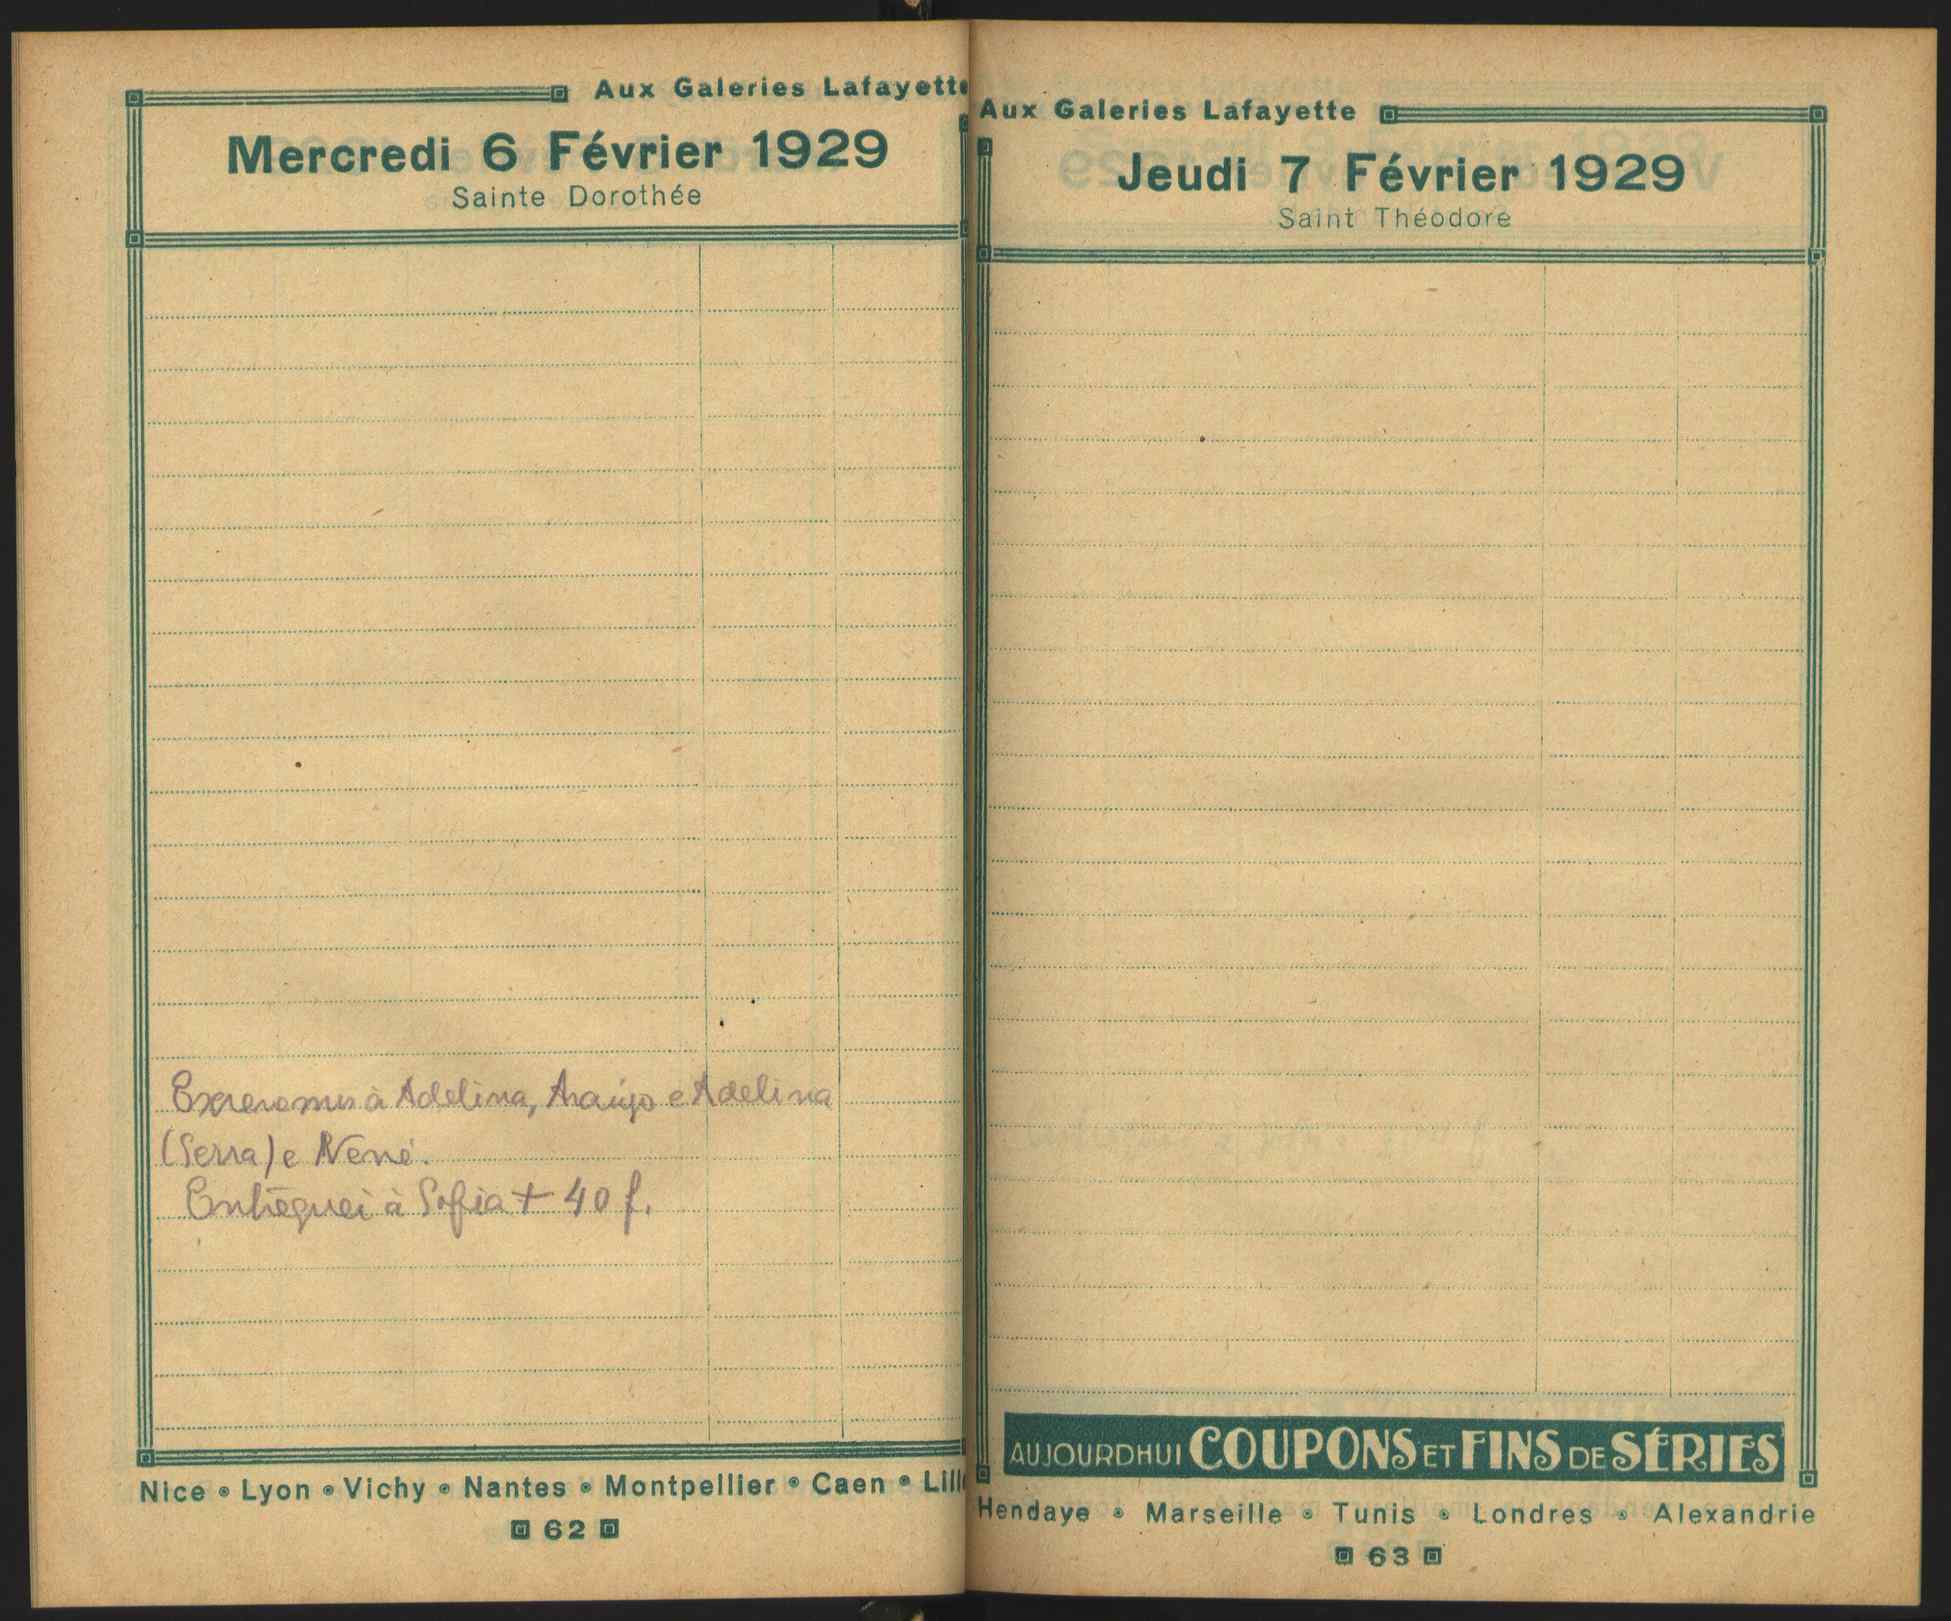 Aux Galeries Lafayette
Mercredi 6 Février 1929
Sainte Dorothée
Escrevemos à Adelina, Araújo e Adelina
(Serra) e Nené.
Entreguei à Sofia + 40 f.
Nice • Lyon • Vichy • Nantes • Montpellier • Caen • Lille
62
Aux Galeries Lafayette
Jeudi 7 Février 1929
Saint Théodore
AUJOURDHUI COUPONS ET FINS DE SÉRIES
Hendaye • Marseille • Tunis • Londres • Alexandrie
63